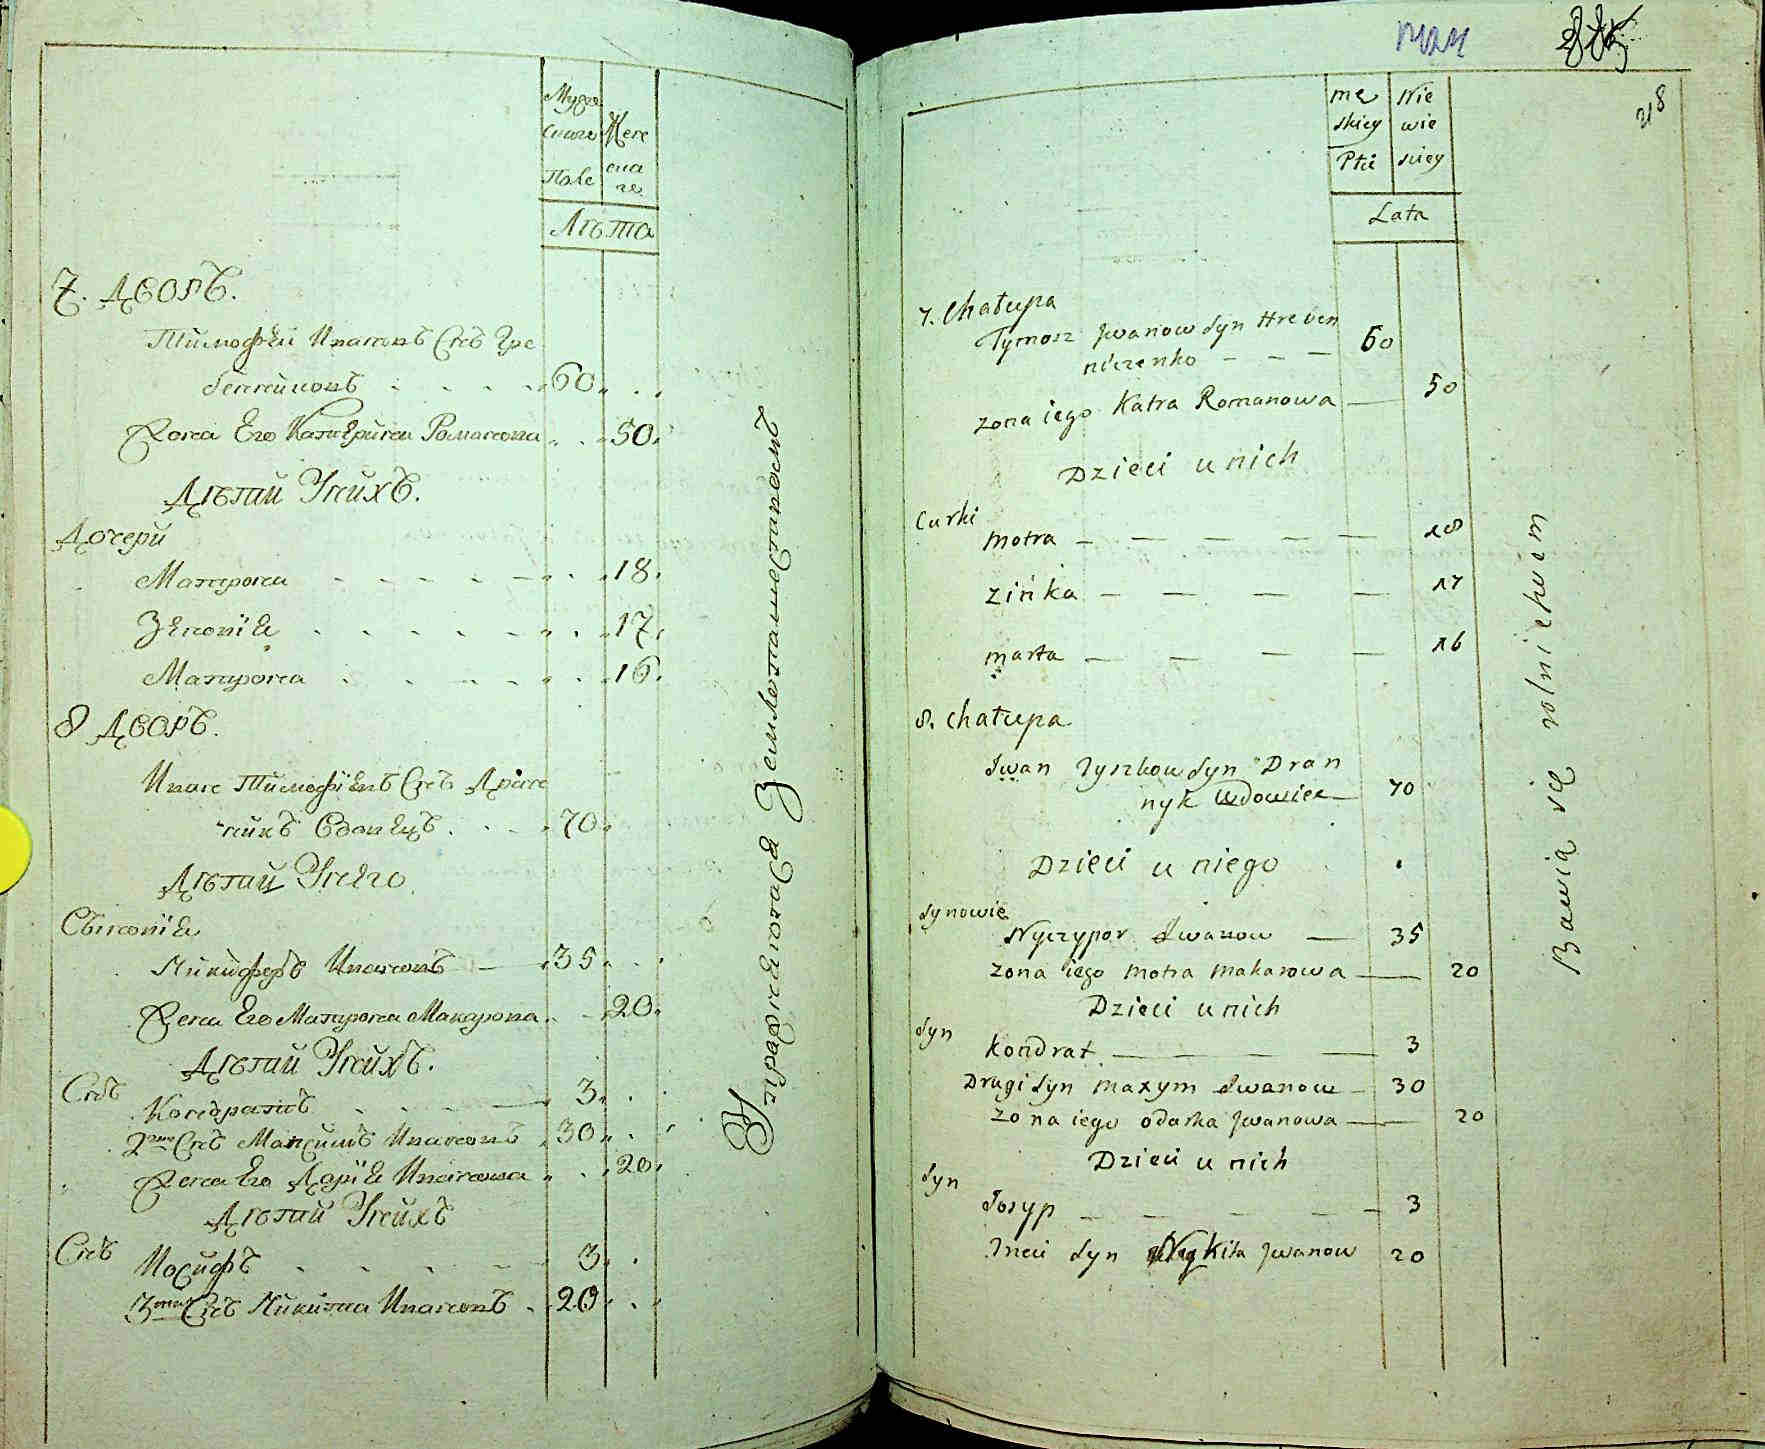 Муже
ска
Поле
Жен
ска
го
Лѣта
7. Дворъ.
Тимофей Ивановъ Снъ Гре
бенниковъ 60
Жена Его Катерина Романова 50
Дѣтий Унихъ.
Дочери
Матрона 18
Зеновiя 17
Матрона 16
8 Дворъ.
Иванъ Тимофiевъ Снъ Дран
никъ Вдовецъ 70
Дѣтий Унего
Сыновiя
Никифоръ Ивановъ 35
Жена Его Матрона Макарова 20
Дѣтий Унихъ.
Снъ
Кондратъ 3
2 Снъ Максимъ Ивановъ 30
Жена Его Дарiя Иванова 20
Дѣтий Унихъ
Снъ Иосифъ 3
3 Снъ Никита Ивановъ 20
Упражняются Землепашествомъ
218
mę
skiey
Płci
Nie
wie
sciey
Lata
7. Chałupa
Tymosz Jwanow Syn Hreben
niczenko 60
zona iego Katra Romanowa 50
Dzieci u nich
Curki
motra 18
zińka 17
marta 16
8. chałupa
Iwan Tyszkow Syn Dran
nyk Wdowiec 70
Dzieci u niego
Synowie
Nyczypor Iwanow 35
zona iego motra makarowa 20
Dzieci u nich
Syn
Kondrat 3
Drugi Syn maxym Iwanow 30
zona iego odarka Jwanowa 20
Dzieci u nich
Syn
Josyp 3
Trzeci Syn Nykita Jwanow 20
Bawią się rolnictwem